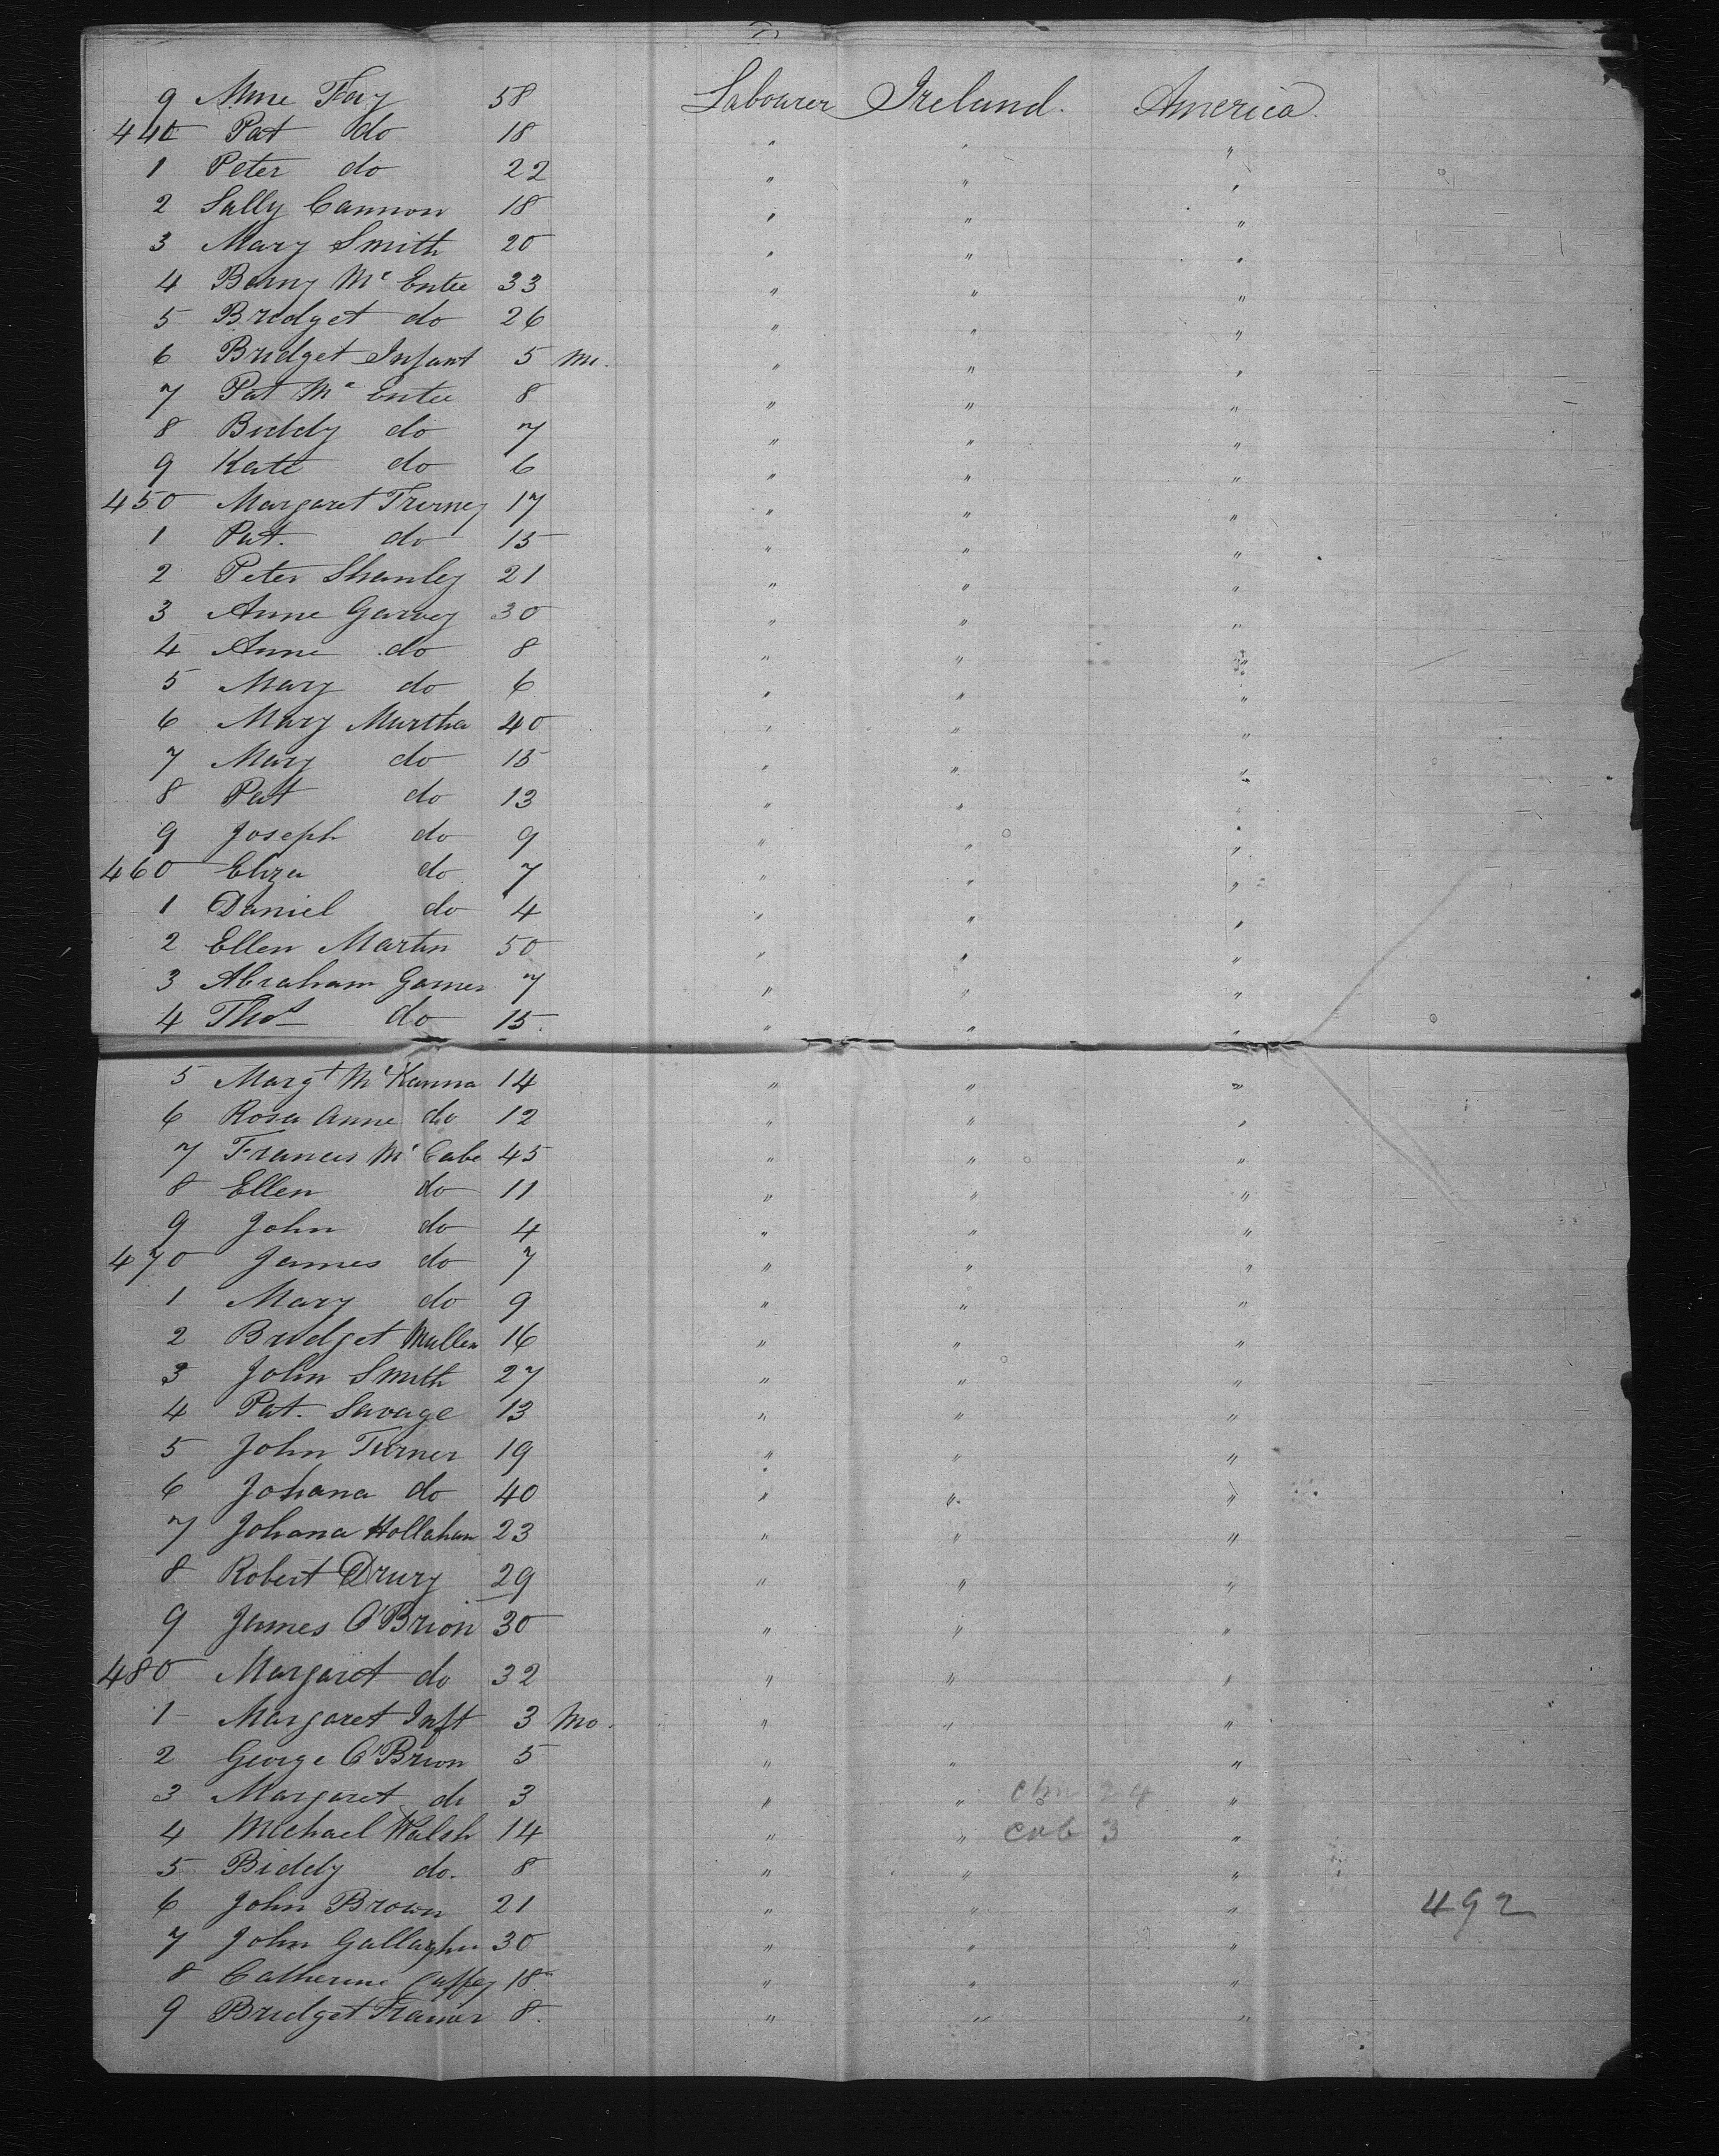 9 Anne Fay 58 Labourer Ireland. America.
440 Pat do 18 " " "
1 Peter do 22 " " "
2 Sally Cannon 18 " " "
3 Mary Smith 20 " " "
4 Benny Mc Entee 33 " " "
5 Bridget do 26 " " "
6 Bridget Infant 5 Mo. " " "
7 Pat Mc Entee 8 " " "
8 Biddy do 7 " " "
9 Kate do 6 " " "
450 Margaret Tierney 17 " " "
1 Pat. do 15 " " "
2 Peter Shanley 21 " " "
3 Anne Garvey 30 " " "
4 Anne do 8 " " "
5 Mary do 6 " " "
6 Mary Murtha 40 " " "
7 Mary do 15 " " "
8 Pat do 13 " " "
9 Joseph do 9 " " "
460 Eliza do 7 " " "
1 Daniel do 4 " " "
2 Ellen Martin 50 " " "
3 Abraham 7 " " "
4 Thos do 15. " " "
5 Margt Mc Kanna 14 " " "
6 Rosa Anne do 12 " " "
7 Frances Mc Cabe 45 " " "
8 Ellen do 11 " " "
9 John do 4 " " "
470 James do 7 " " "
1 Mary do 9 " " "
2 Bridget Mullen 16 " " "
3 John Smith 27 " " "
4 Pat. Savage 13 " " "
5 John Turner 19 " " "
6 Johana do 40 " " "
7 Johana Hollahan 23 " " "
8 Robert Drury 29 " " "
9 James O'Brion 30 " " "
480 Margaret do 32 " " "
1 Margaret Inft 3 Mo. " " "
2 George O'Brion 5 " " "
3 Margaret do 3 " " chn 24 "
4 Michael Walsh 14 " " cab 3 "
5 Biddy do. 8 " " "
6 John Brown 21 " " " 492
7 John Gallagher 30 " " "
8 Catherine Cuffey 18 " " "
9 Bridget 8. " " "